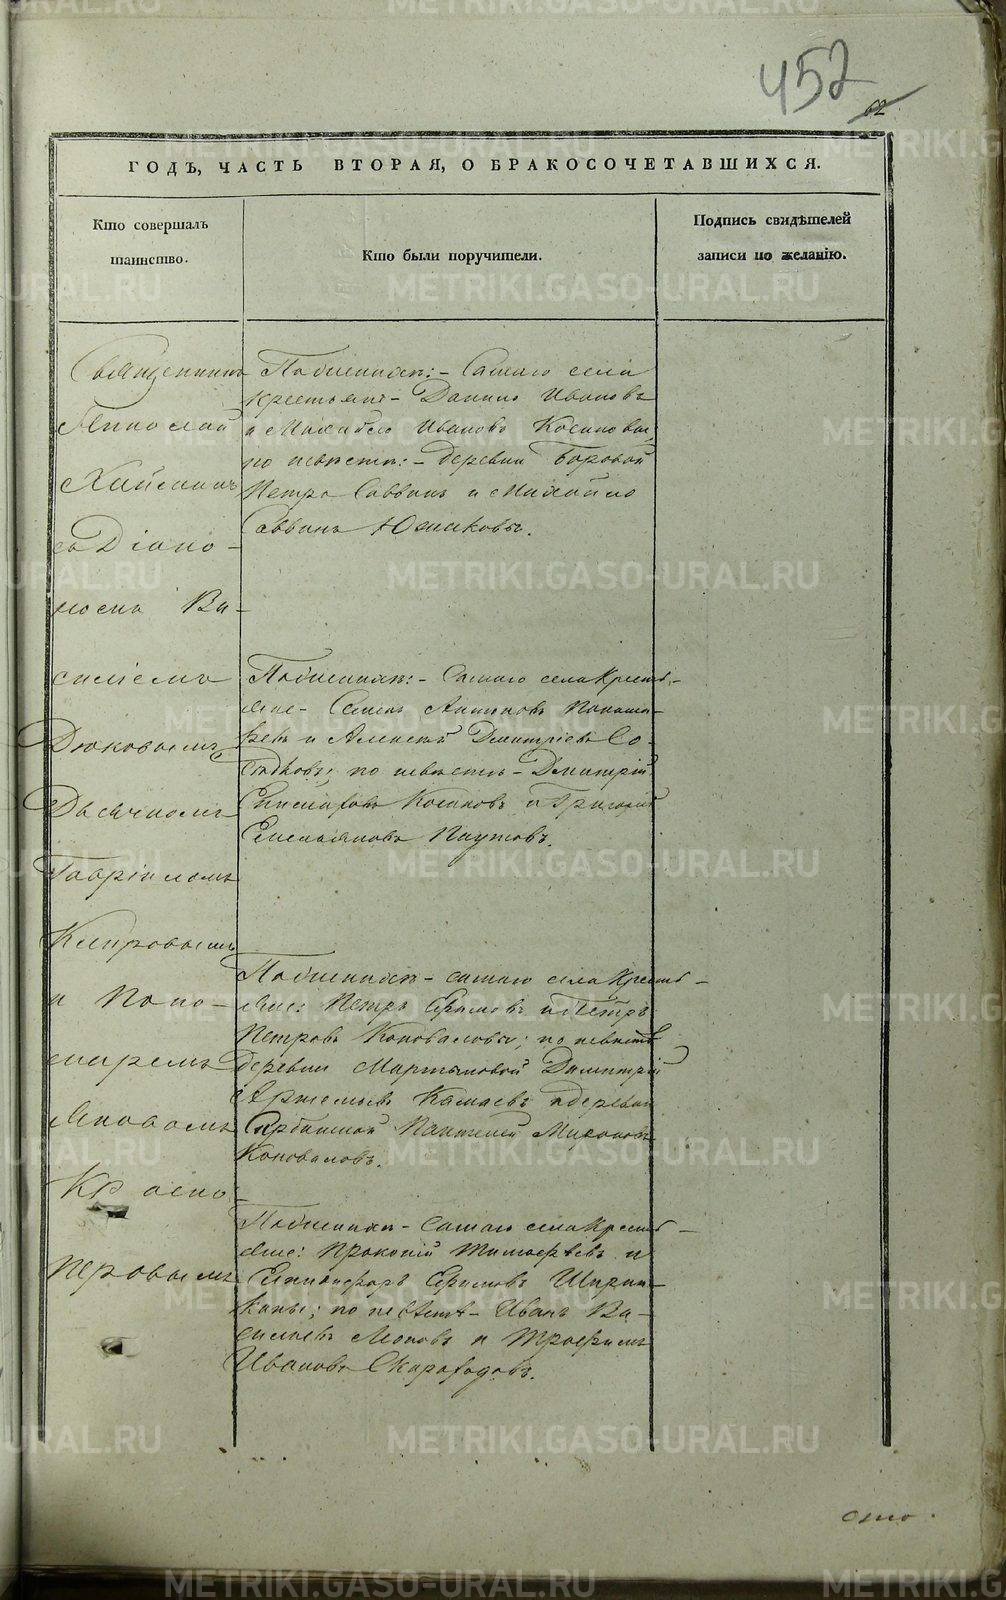 452
62
ГОДЪ, ЧАСТЬ ВТОРАЯ, О БРАКОСОЧЕТАВШИХСЯ.
Кто совершалъ
таинство.
Кто были поручители.
Подпись свидѣтелей
записи по желанію.
Священникъ
Николай
съ Діако-
номъ Ва-
силіемъ
Дюковымъ,
Дьячкомъ
Гавріиломъ
Кипровымъ
и Поно-
маремъ
Яковомъ
Красно-
перовымъ
По женихѣ:- Самаго села
крестьяне- Данило Ивановъ
и Михайло Ивановъ Косиковы,
по невѣстѣ:- деревни Боровой
Петръ Саввинъ и Михайло
Саввинъ Южаковы.
По женихѣ:- Самаго села Кресть-
яне- Семенъ Антиповъ
и Алексѣй Дмитріевъ Со-
по невѣстѣ- Дмитрій
Косиковъ и Григорій
Емельяновъ Паутовъ.
По женихѣ- самаго села Кресть-
яне: Петръ Ефимовъ и Петръ
Петровъ Коноваловы; по невѣстѣ
деревни Мартыновой Димитрій
Артемьевъ Камаевъ и деревни
Пантелей Мироновъ
Коноваловъ.
По женихѣ- Самаго села Кресть-
яне: Прокопій Тимофѣевъ и
Ефимовъ Ширин-
кины; по невѣстѣ- Иванъ Ва-
сильевъ и Трофимъ
Ивановъ Скороходовъ.
METRIKI.GASO-URAL.RU